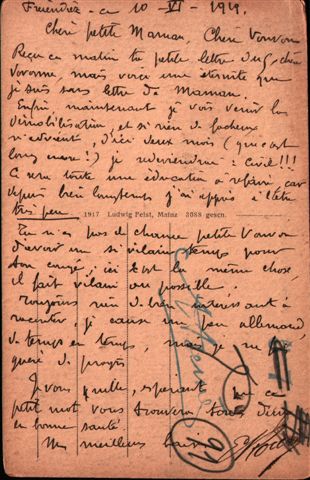 ce 10 - VI - 1919.
Chère petite Maman, Chère Vonvon
Reçu ce matin ta petite lettre du 5, chère
Vovonne, mais voici une éternité que
je suis sans lettre de Maman.
Enfin, maintenant je vois venir la
démobilisation, et si rien de facheux
n'advient, d'ici deux mois (que c'est
long encore!) je redeviendrai : Civil!!!
Ce sera toute une éducation à refaire, car
depuis bien longtemps j'ai appris à l'être
très peu.
1917 Ludwig Feist, Mainz 3088 gesch.
Tu n'as pas de chance petite Vonvon
d'avoir un si vilain temps pour
ton congé; ici c'est la même chose,
il fait vilain au possible.
Toujours rien de bien intéressant à
raconter, je cause un peu allemand,
de temps en temps, mais je ne fais
guère de progrès
Je vous quitte, espérant que ce
petit mot vous trouvera toutes deux
en bonne santé.
Mes meilleurs baisers